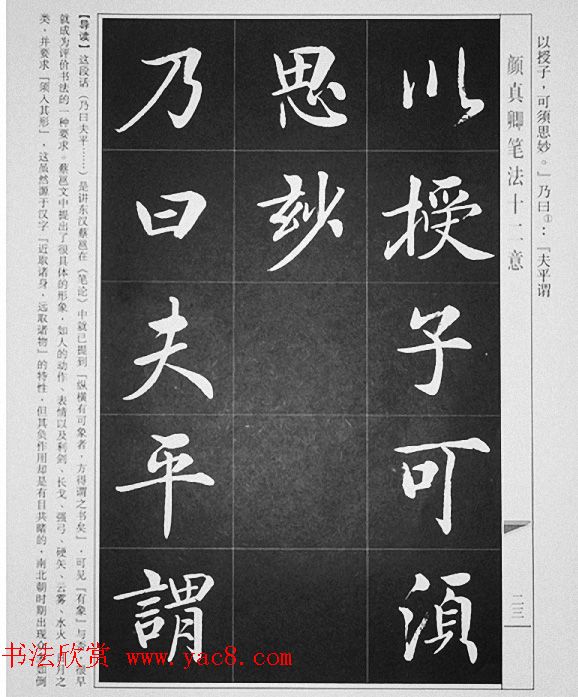 以授子，可须思妙。」乃曰①：『夫平谓
颜真卿笔法十二意
二三
以授子可須
思玅
乃曰夫平謂
【导读】这段话（乃曰夫平……）是讲东汉蔡邕在《笔论》中就已提到『纵横有可象者，方得谓之书矣』，可见『有象』与 很早
就成为评价书法的一种要求。蔡邕文中提出了很具体的形象，如人的动作、表情以及利剑、长戈、强弓、硬矢、云雾、水火、 月之
类，并要求『须入其形』，这虽然源于汉字『近取诸身，远取诸物』的特性，但其负作用却是有目共睹的，南北朝时期出现 如倒
书法欣赏 www.yac8.com